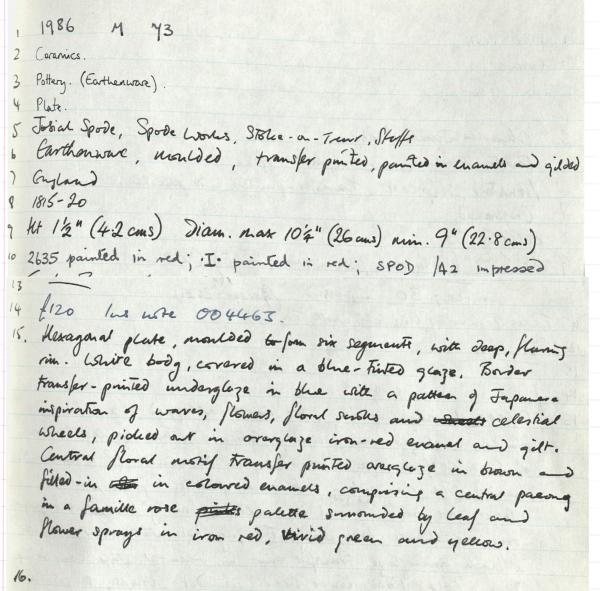 1 1986 M 73
2 Ceramics.
3 Pottery. (Earthenware).
4 Plate.
5 Josiah Spode, Spode Works, Stoke-on-Trent, Staffs
6 Earthenware, moulded, transfer printed, painted in enamels and gilded
7 England
8 1815-20
9 Ht 1½" (4.2 cms) Diam. max 10¼" (26cms) min. 9" (22.8cms)
10 2635 painted in red; ·I· painted in red; SPOD /A2 impressed
13
14 £120 Ins note 004463.
15. Hexagonal plate, moulded to form six segments, with deep, flaring
rim. White body, covered in a blue-tinted glaze. Border
transfer-printed underglaze in blue with a pattern of Japanese
inspiration of waves, flowers, floral scrolls and celestial
wheels, picked out in overglaze iron-red enamel and gilt.
Central floral motif transfer printed overglaze in brown and
filled-in in coloured enamels, comprising a central paeony
in a famille rose palette surrounded by leaf and
flower sprays in iron red, vivid green and yellow.
16.